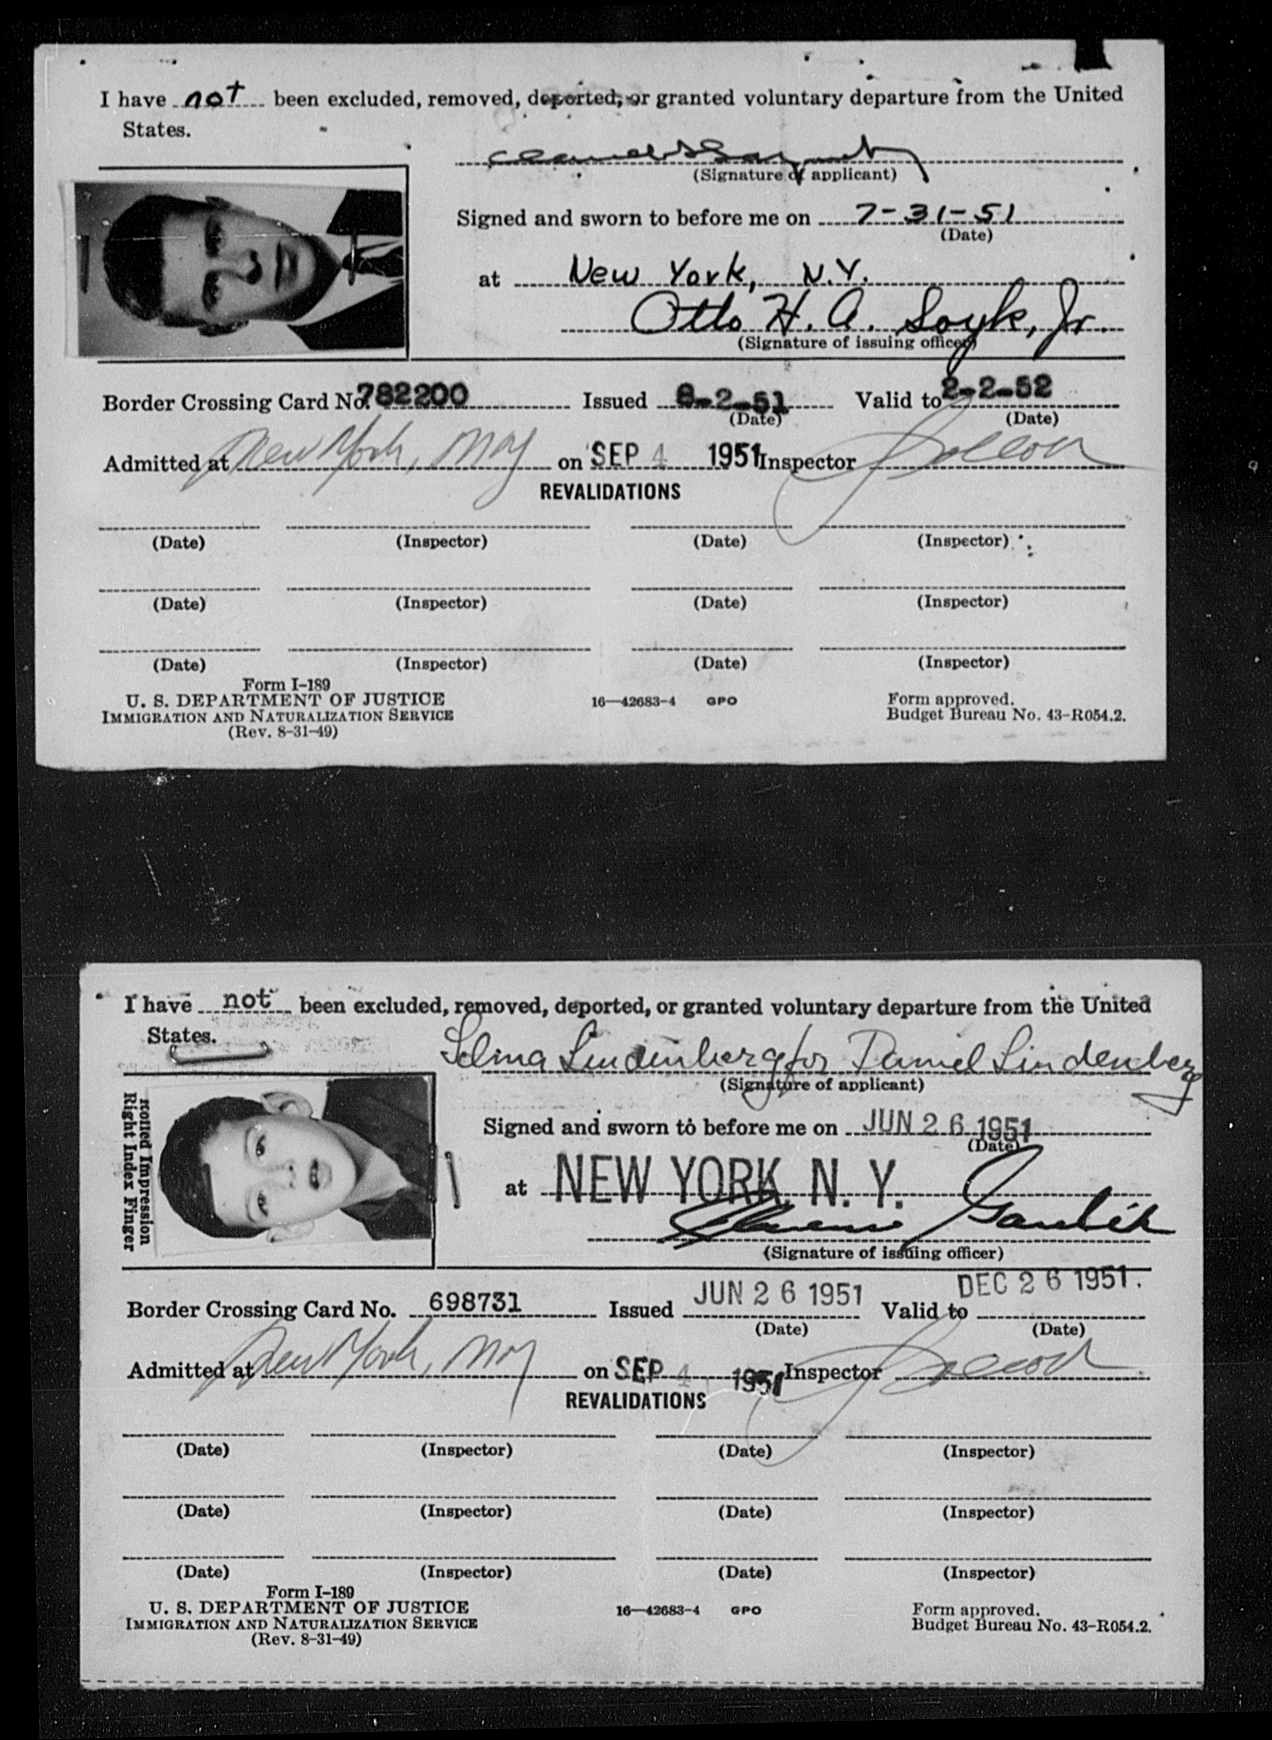 I have not been excluded, removed, deported, or granted voluntary departure from the United
States.
(Signature of applicant)
Signed and sworn to before me on 7-31-51
(Date)
at New York, N.Y.
Otto H. A. Soyk, Jr.
(Signature of issuing officer)
Border Crossing Card No. 782200 Issued 8-2-51 Valid to 2-2-52
(Date) (Date)
Admitted at New York, NY on SEP 4 1951 Inspector
REVALIDATIONS
(Date) (Inspector) (Date) (Inspector)
(Date) (Inspector) (Date) (Inspector)
(Date) (Inspector) (Date) (Inspector)
Form I-189
U. S. DEPARTMENT OF JUSTICE 16—42683-4 GPO Form approved.
IMMIGRATION AND NATURALIZATION SERVICE Budget Bureau No. 43-R054.2.
(Rev. 8-31-49)
I have not been excluded, removed, deported, or granted voluntary departure from the United
States.
Selma Lindenberg for Daniel Lindenberg
(Signature of applicant)
Rolled Impression
Right Index Finger
Signed and sworn to before me on JUN 26 1951
(Date)
at NEW YORK, N. Y.
(Signature of issuing officer)
Border Crossing Card No. 698731 Issued JUN 26 1951 Valid to DEC 26 1951.
(Date) (Date)
Admitted at New York, NY on SEP 4 1951 Inspector
REVALIDATIONS
(Date) (Inspector) (Date) (Inspector)
(Date) (Inspector) (Date) (Inspector)
(Date) (Inspector) (Date) (Inspector)
Form I-189
U. S. DEPARTMENT OF JUSTICE 16—42683-4 GPO Form approved.
IMMIGRATION AND NATURALIZATION SERVICE Budget Bureau No. 43-R054.2.
(Rev. 8-31-49)